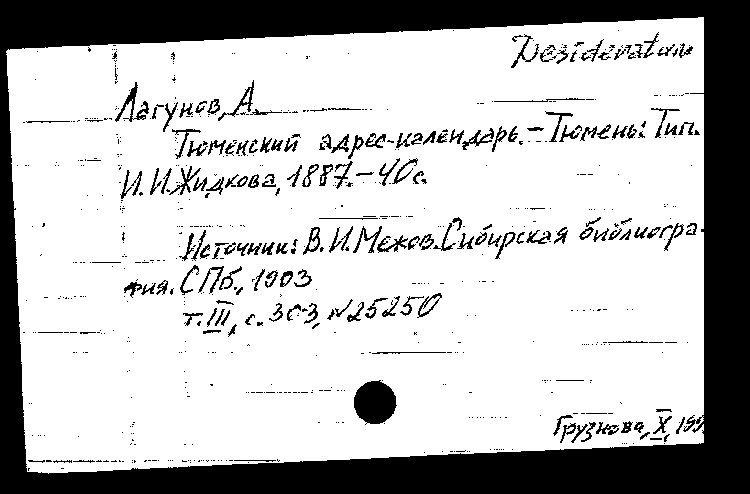 Desideratum
Лагунов, А.
Тюменский адрес-календарь. - Тюмень: Тип.
И. И. Жидкова, 1887. - 40 с.
Источник: В. И. Межов. Сибирская библиогра-
фия. СПб., 1903
т. III, с. 303, №25250
Грузнова, X,